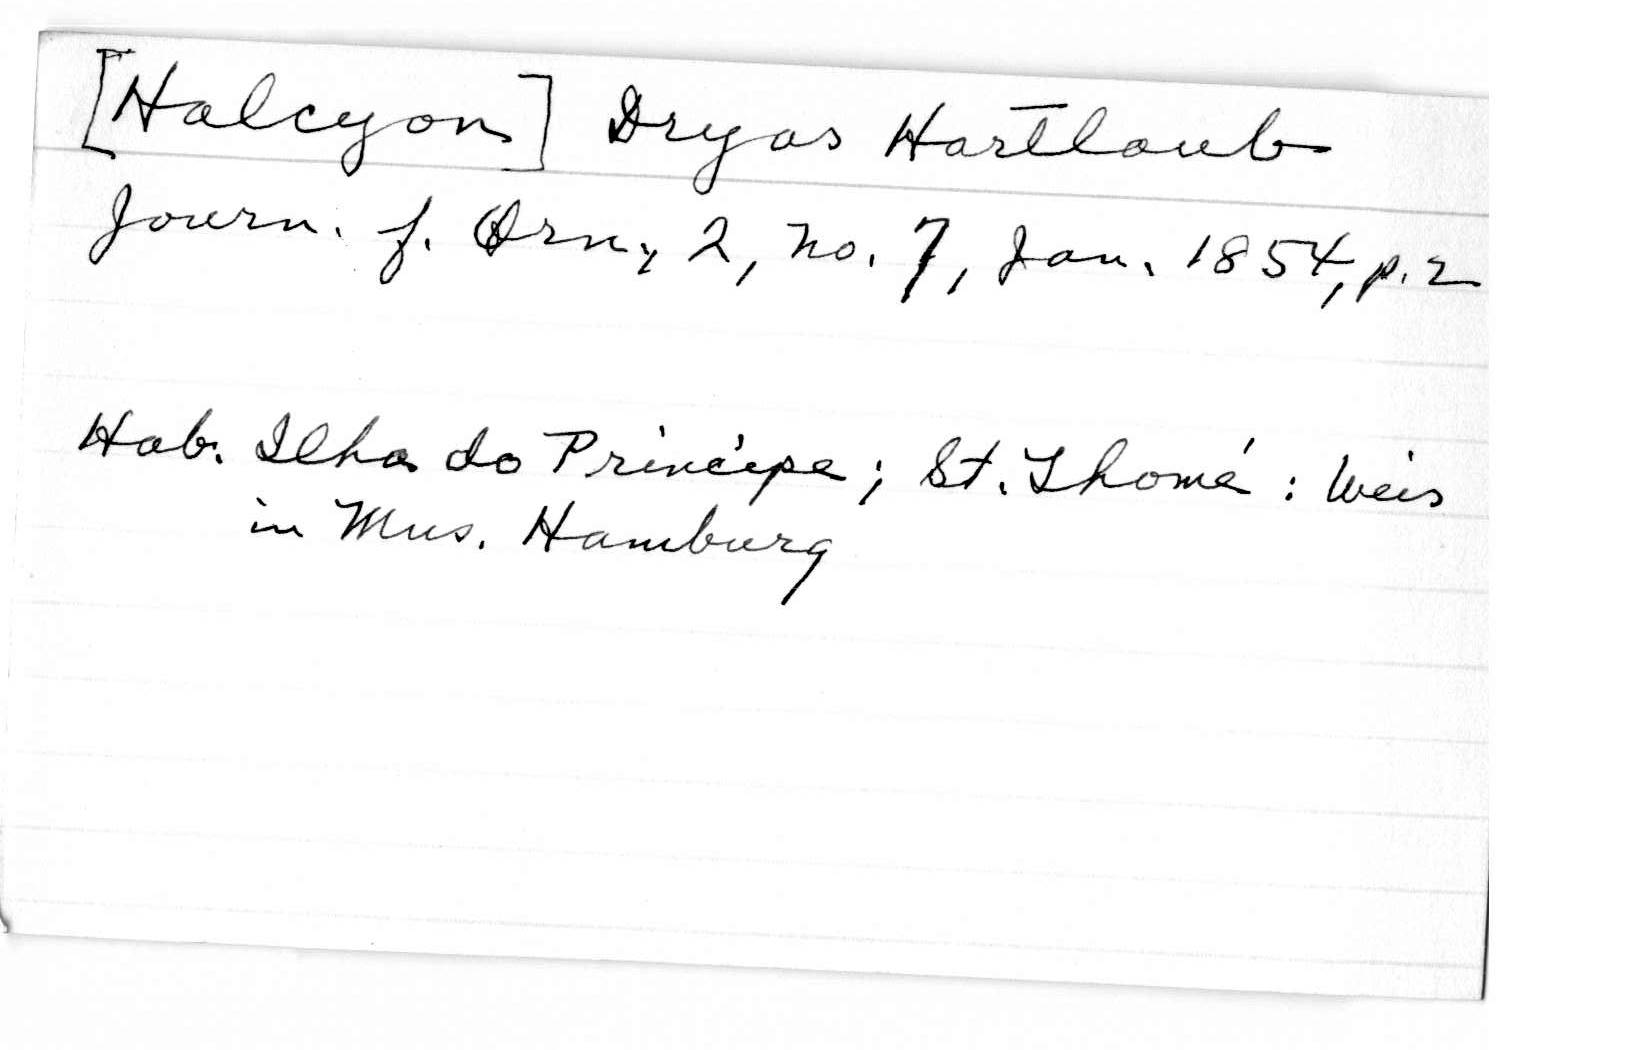 [Halcyon] Dryas Hartlaub
Journ. f. Orn., 2, no. 7, Jan. 1854, p. 2
Hab. Ilha do Principe; St. Thomé: Weis
in Mus. Hamburg